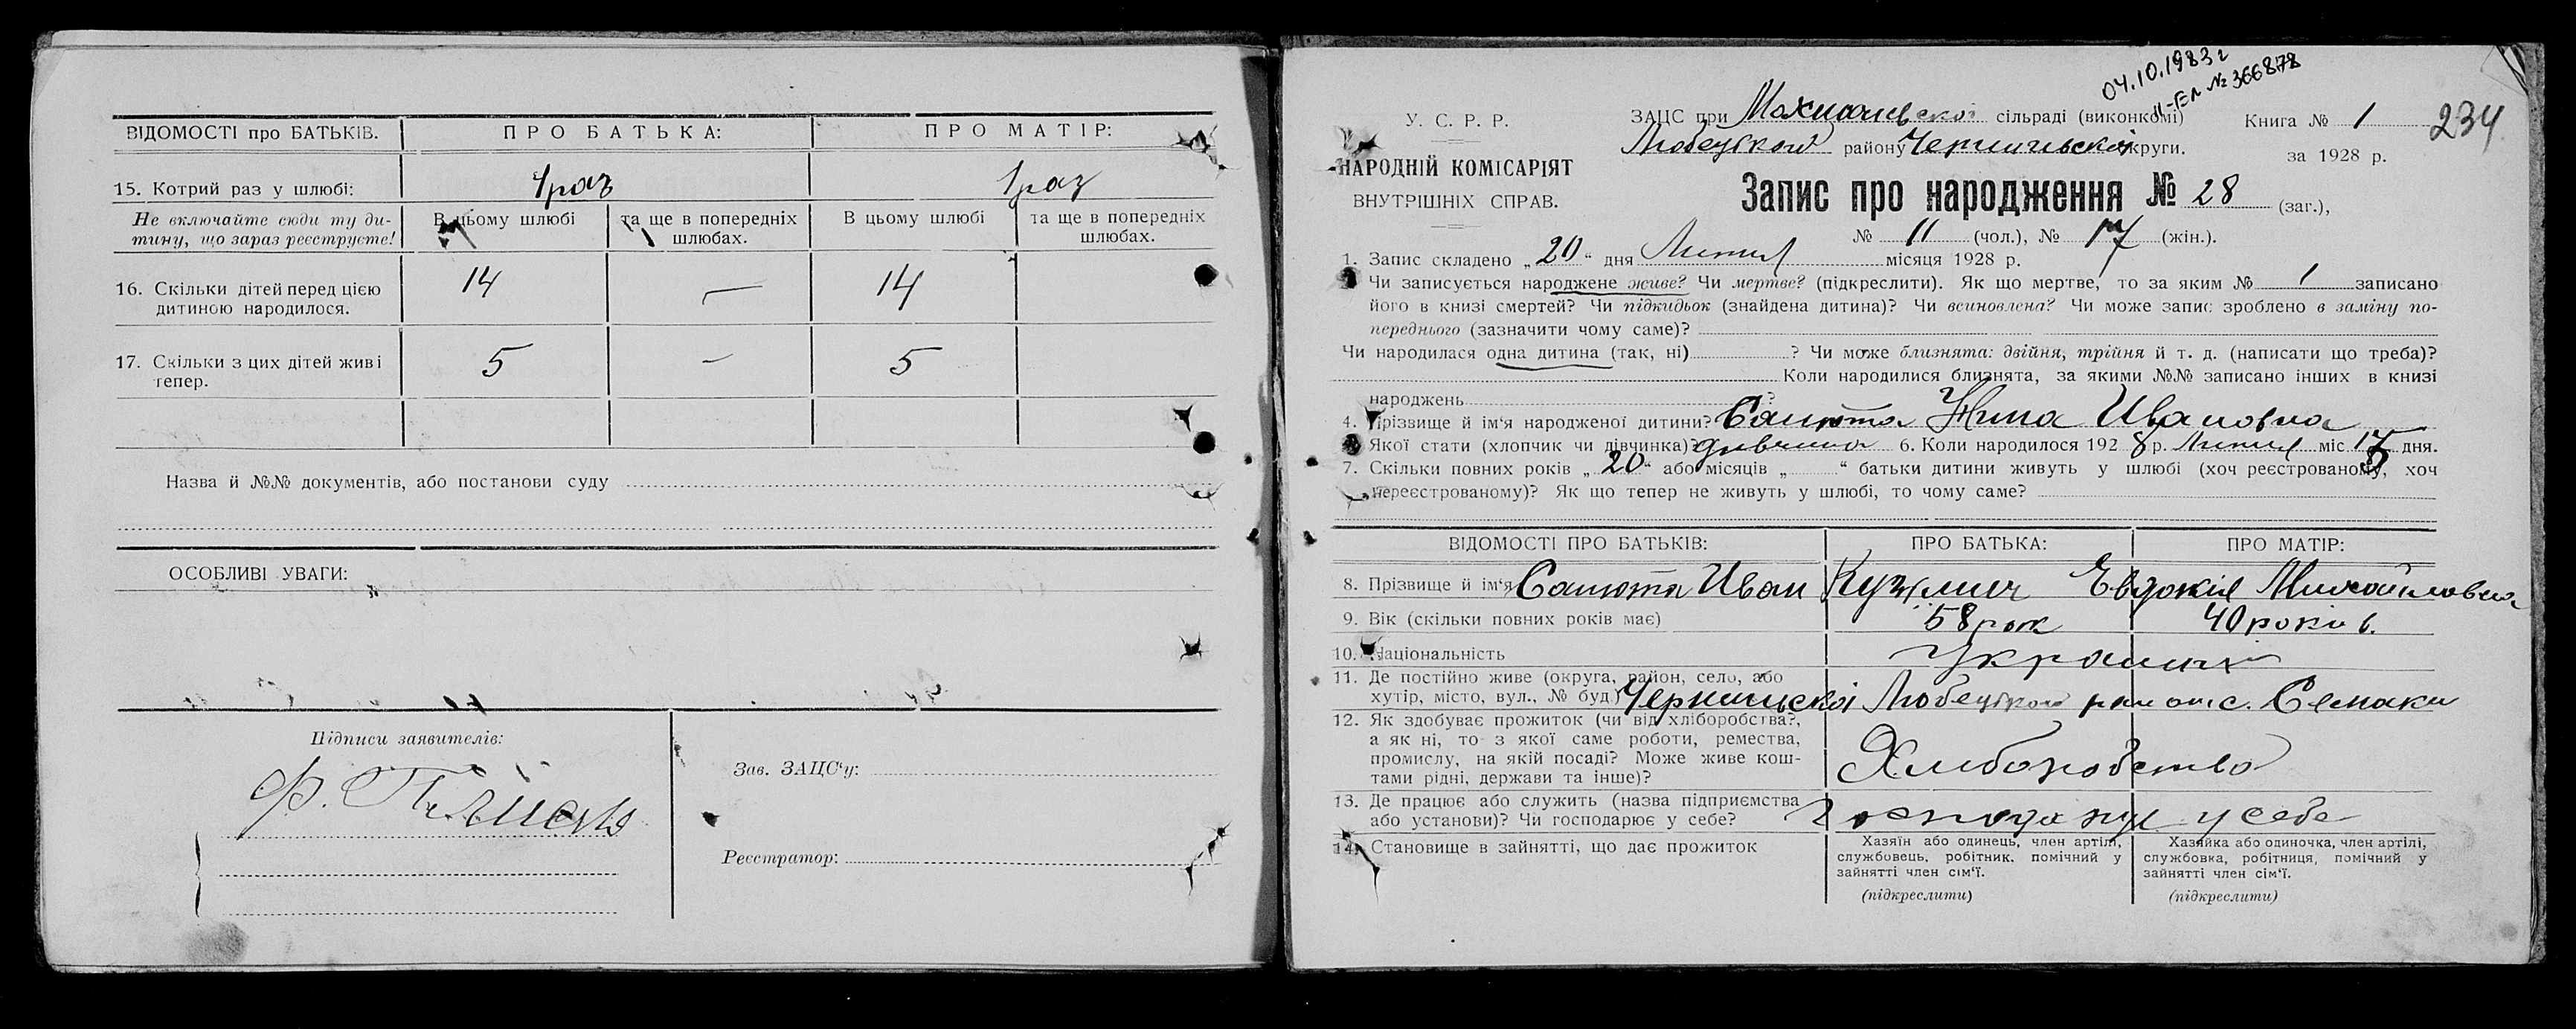 ВІДОМОСТІ про БАТЬКІВ. ПРО БАТЬКА: ПРО МАТІР:
15. Котрий раз у шлюбі: 1 раз 1 раз
Не включайте сюди ту ди- В цьому шлюбі та ще в попередніх В цьому шлюбі та ще в попередніх
тину, що зараз реєструєте! шлюбах. шлюбах.
16. Скільки дітей перед цією 14 — 14
дитиною народилося.
17. Скільки з цих дітей живі 5 — 5
тепер.
Назва й №№ документів, або постанови суду
ОСОБЛИВІ УВАГИ:
Підписи заявителів:
Ф.
Зав. ЗАЦС'у:
Реєстратор:
04.10.1983 г
№ 366878
У. С. Р. Р.
НАРОДНІЙ КОМІСАРІЯТ
ВНУТРІШНІХ СПРАВ.
ЗАЦС при сільраді (виконкомі) Книга № 1 234
Любецького району Чернигівської округи. за 1928 р.
Запис про народження № 28 (заг.),
№ 11 (чол.), № 17 (жін.).
1. Запис складено „20" дня Липня місяця 1928 р.
Чи записується народжене живе? Чи мертве? (підкреслити). Як що мертве, то за яким № 1 записано
його в книзі смертей? Чи підкидьок (знайдена дитина)? Чи всиновлена? Чи може запис зроблено в заміну по-
переднього (зазначити чому саме)?
Чи народилася одна дитина (так, ні) ? Чи може близнята: двійня, трійня й т. д. (написати що треба)?
Коли народилися близнята, за якими №№ записано інших в книзі
народжень ?
4. Прізвище й ім'я народженої дитини? Санюта Нина Ивановна
Якої стати (хлопчик чи дівчинка)? дивчина 6. Коли народилося 1928 р. Липня міс. дня.
7. Скільки повних років „20" або місяців „ " батьки дитини живуть у шлюбі (хоч реєстрованому, хоч
нереєстрованому)? Як що тепер не живуть у шлюбі, то чому саме?
ВІДОМОСТІ ПРО БАТЬКІВ: ПРО БАТЬКА: ПРО МАТІР:
8. Прізвище й ім'я Санюта Иван Кузмич Евдокія Михайловна
9. Вік (скільки повних років має) 58 рок 40 років.
10. Національність
11. Де постійно живе (округа, район, село, або
хутір, місто, вул., № буд.) Любецького с. Семаки
12. Як здобуває прожиток (чи від хліборобства?,
а як ні, то з якої саме роботи, ремества,
промислу, на якій посаді? Може живе кош-
тами рідні, держави та інше)? Хлиборобство
13. Де працює або служить (назва підприємства
або установи)? Чи господарює у себе? у себе
14. Становище в зайнятті, що дає прожиток
Хазяїн або одинець, член артілі,
службовець, робітник, помічний у
зайнятті член сім'ї.
(підкреслити)
Хазяйка або одиночка, член артілі,
службовка, робітниця, помічний у
зайнятті член сім'ї.
(підкреслити)